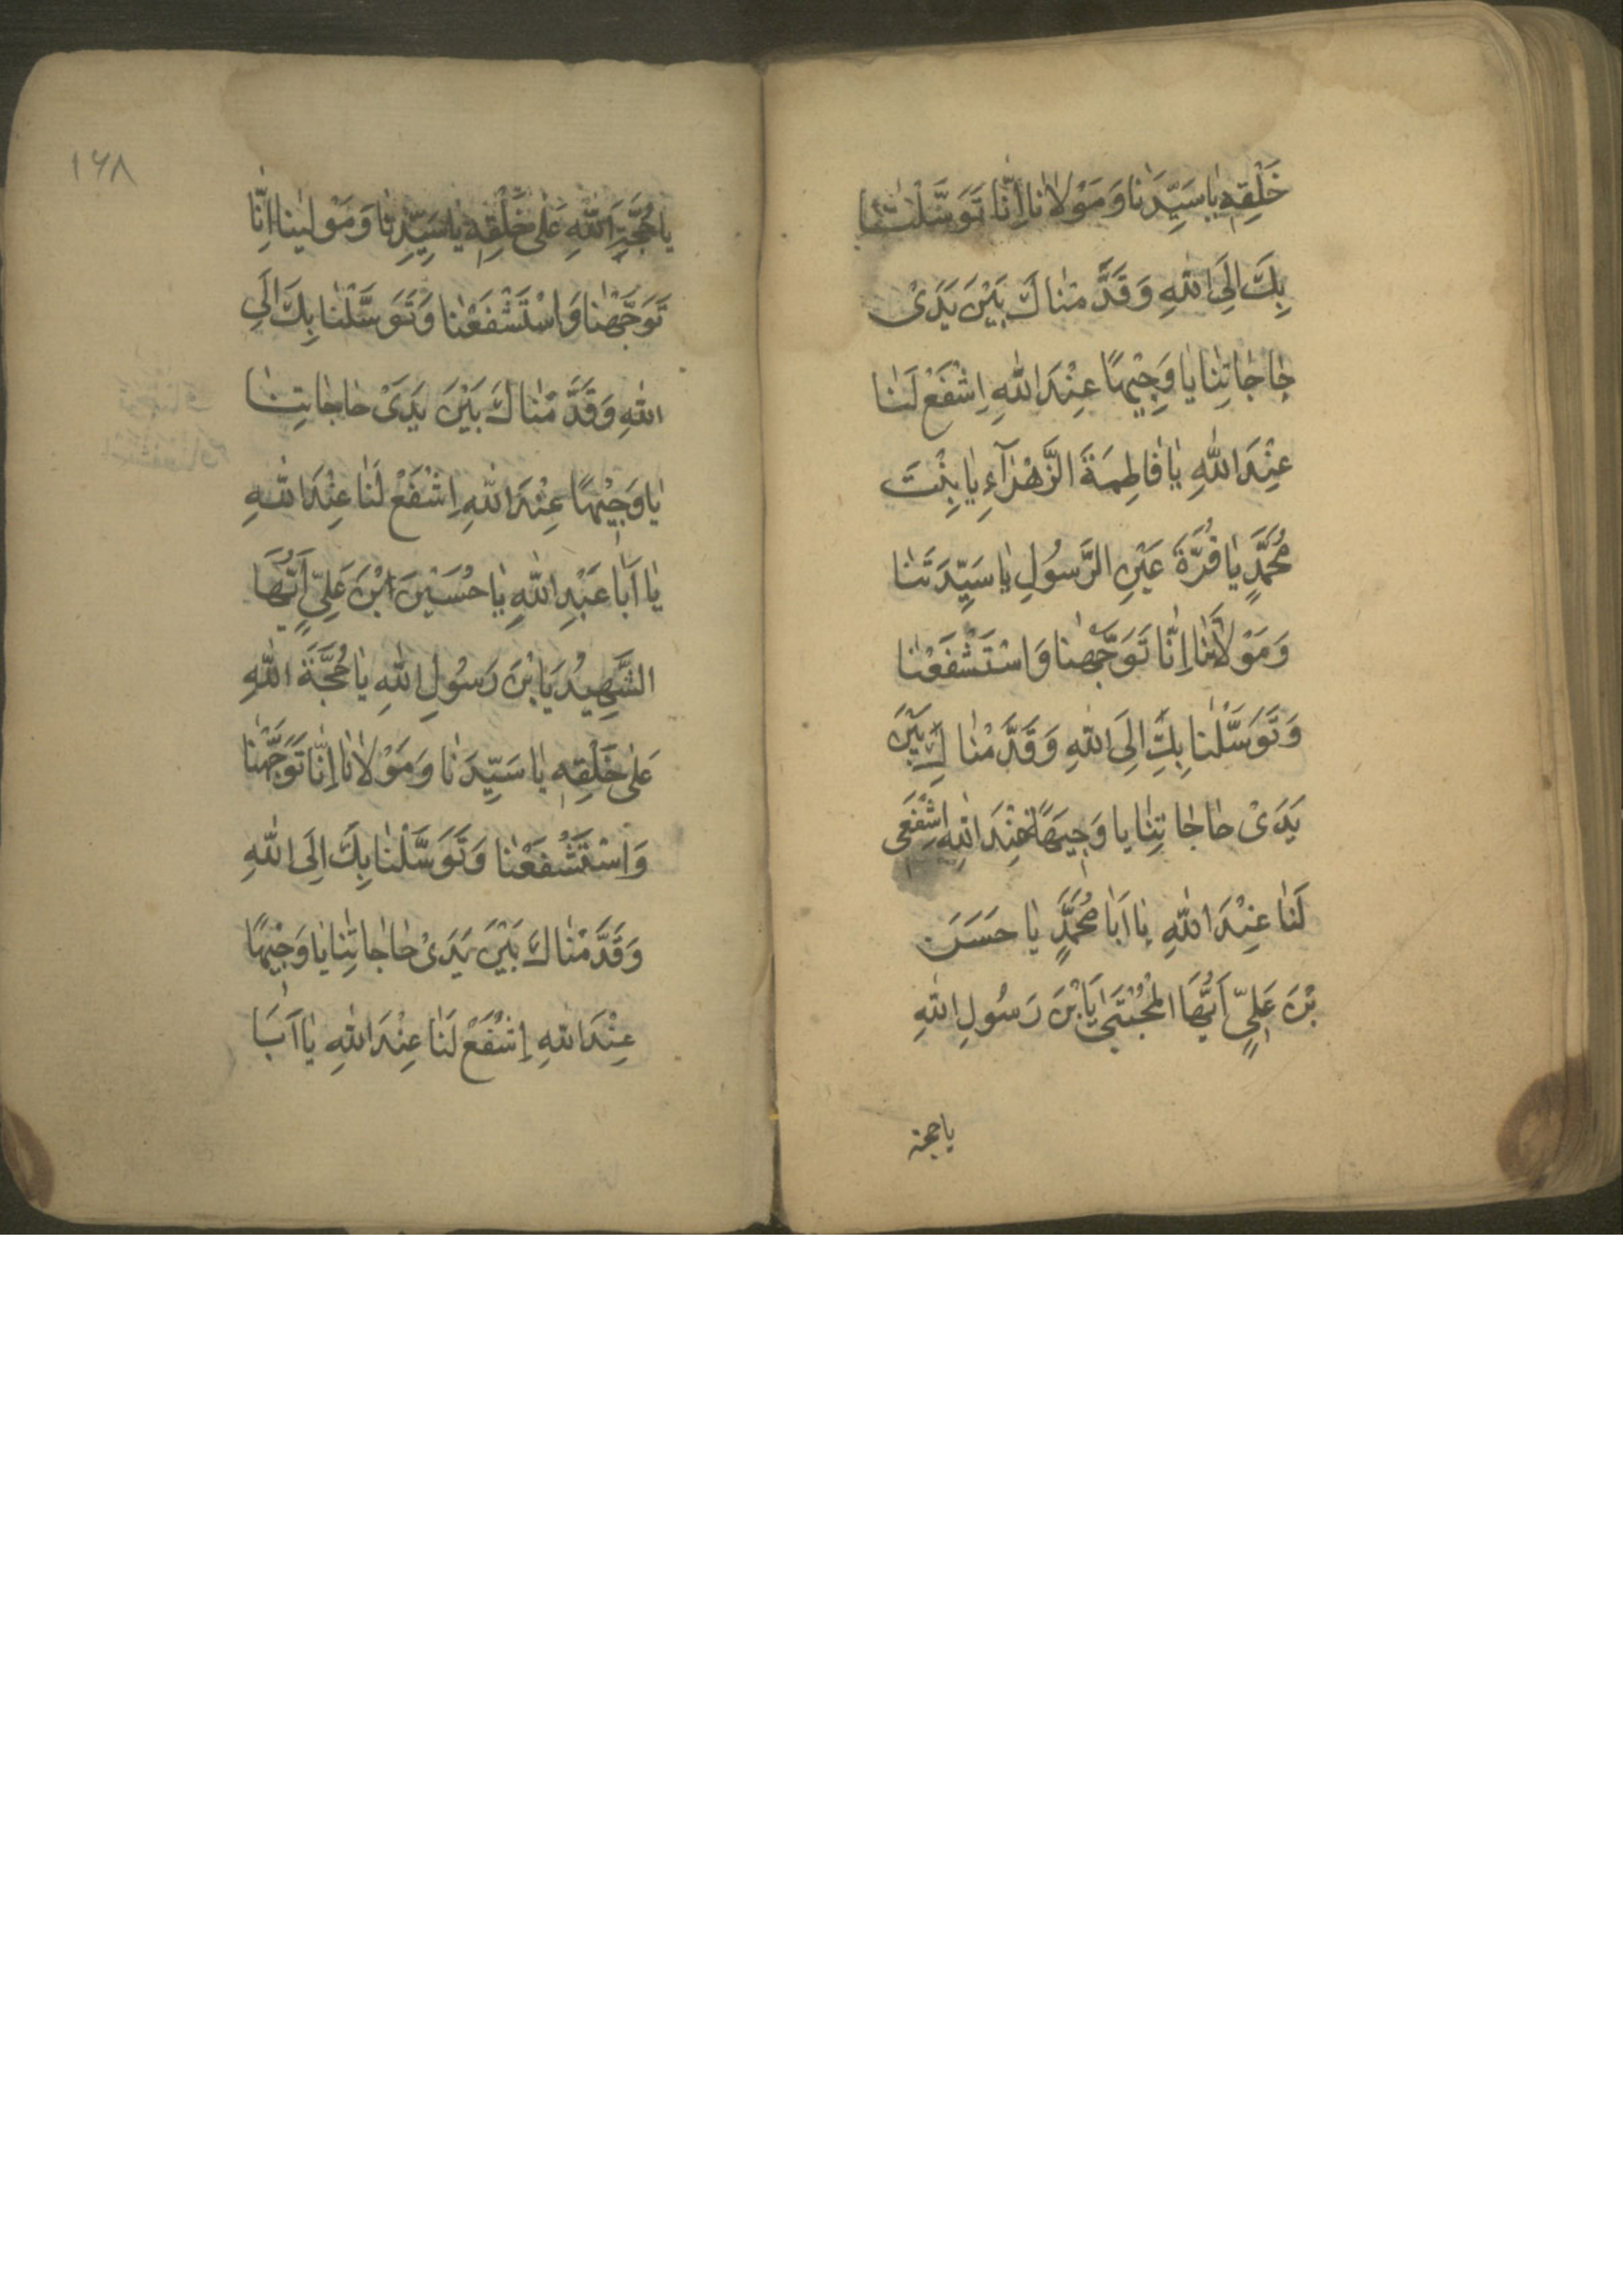 خَلْقِهِ يا سَيِّدَنا وَ مَوْلانا اِنّا تَوَسَّلْنا
بِكَ اِلَى اللهِ وَ قَدَّمْناكَ بَيْنَ يَدَىْ
حاجاتِنا يا وَجِيْهًا عِنْدَ اللهِ اِشْفَعْ لَنا
عِنْدَ اللهِ يا فاطِمَةَ الزَّهْرَآءِ يا بِنْتَ
مُحَمَّدٍ يا قُرَّةَ عَيْنِ الرَّسُولِ يا سَيِّدَتَنا
وَ مَوْلاتَنا اِنّا تَوَجَّهْنا وَ اسْتَشْفَعْنا
وَ تَوَسَّلْنا بِكِ اِلَى اللهِ وَ قَدَّمْناكِ بَيْنَ
يَدَىْ حاجاتِنا يا وَجِيهَةً عِنْدَ اللهِ اِشْفَعى
لَنا عِنْدَ اللهِ يا اَبا مُحَمَّدٍ يا حَسَنَ
بْنَ عَلِيٍّ اَيُّهَا الْمُجْتَبى يَا بْنَ رَسُولِ اللهِ
يا حجة
١٦٨
يا حُجَّةَ اللهِ عَلى خَلْقِهِ يا سَيِّدِنا وَ مَوْلينا اِنّا
تَوَجَّهْنا وَ اسْتَشْفَعْنا وَ تَوَسَّلْنا بِكَ اِلَى
اللهِ وَ قَدَّمْناكَ بَيْنَ يَدَىْ حاجاتِنا
يا وَجِيْهًا عِنْدَ اللهِ اِشْفَعْ لَنا عِنْدَ اللهِ
يا اَبا عَبْدِ اللهِ يا حُسَيْنَ ابْنَ عَلِيٍّ اَيُّهَا
الشَّهِيدُ يَا بْنَ رَسُولِ اللهِ يا حُجَّةَ اللهِ
عَلى خَلْقِهِ يا سَيِّدَنا وَ مَوْلانا اِنّا تَوَجَّهْنا
وَ اسْتَشْفَعْنا وَ تَوَسَّلْنا بِكَ اِلَى اللهِ
وَ قَدَّمْناكَ بَيْنَ يَدَىْ حاجاتِنا يا وَجِيْهًا
عِنْدَ اللهِ اِشْفَعْ لَنا عِنْدَ اللهِ يا اَبَا